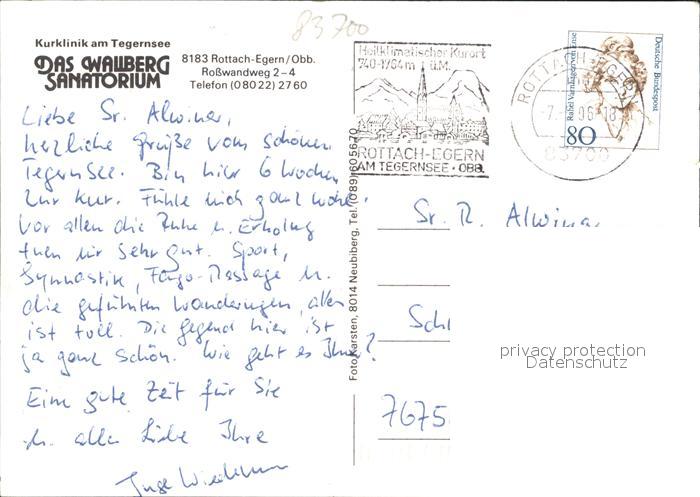 83700
Kurklinik am Tegernsee
DAS WALLBERG
SANATORIUM
8183 Rottach-Egern/Obb.
Roßwandweg 2–4
Telefon (0 80 22) 27 60
Liebe Sr. Alwina,
herzliche Grüße vom schönen
Tegernsee. Bin hier 6 Wochen
zur Kur. Fühle mich ganz wohl.
Vor allen die Ruhe u. Erholung
tuen mir sehr gut. Sport,
Gymnastik, Fango-Massage u.
die geführten Wanderungen, alles
ist toll. Die Gegend hier ist
ja ganz schön. Wie geht es Ihnen?
Eine gute Zeit für Sie
u. alles Liebe Ihre
Inge
Foto Karsten, 8014 Neubiberg, Tel. (089) 605670
Heilklimatischer Kurort
740-1764m ü.M.
ROTTACH-EGERN
AM TEGERNSEE · OBB.
ROTTACH-EGERN
83700
Rahel Varnhagen von Ense
Deutsche Bundespost
80
Sr. R. Alwina
Sch
7675
privacy protection
Datenschutz